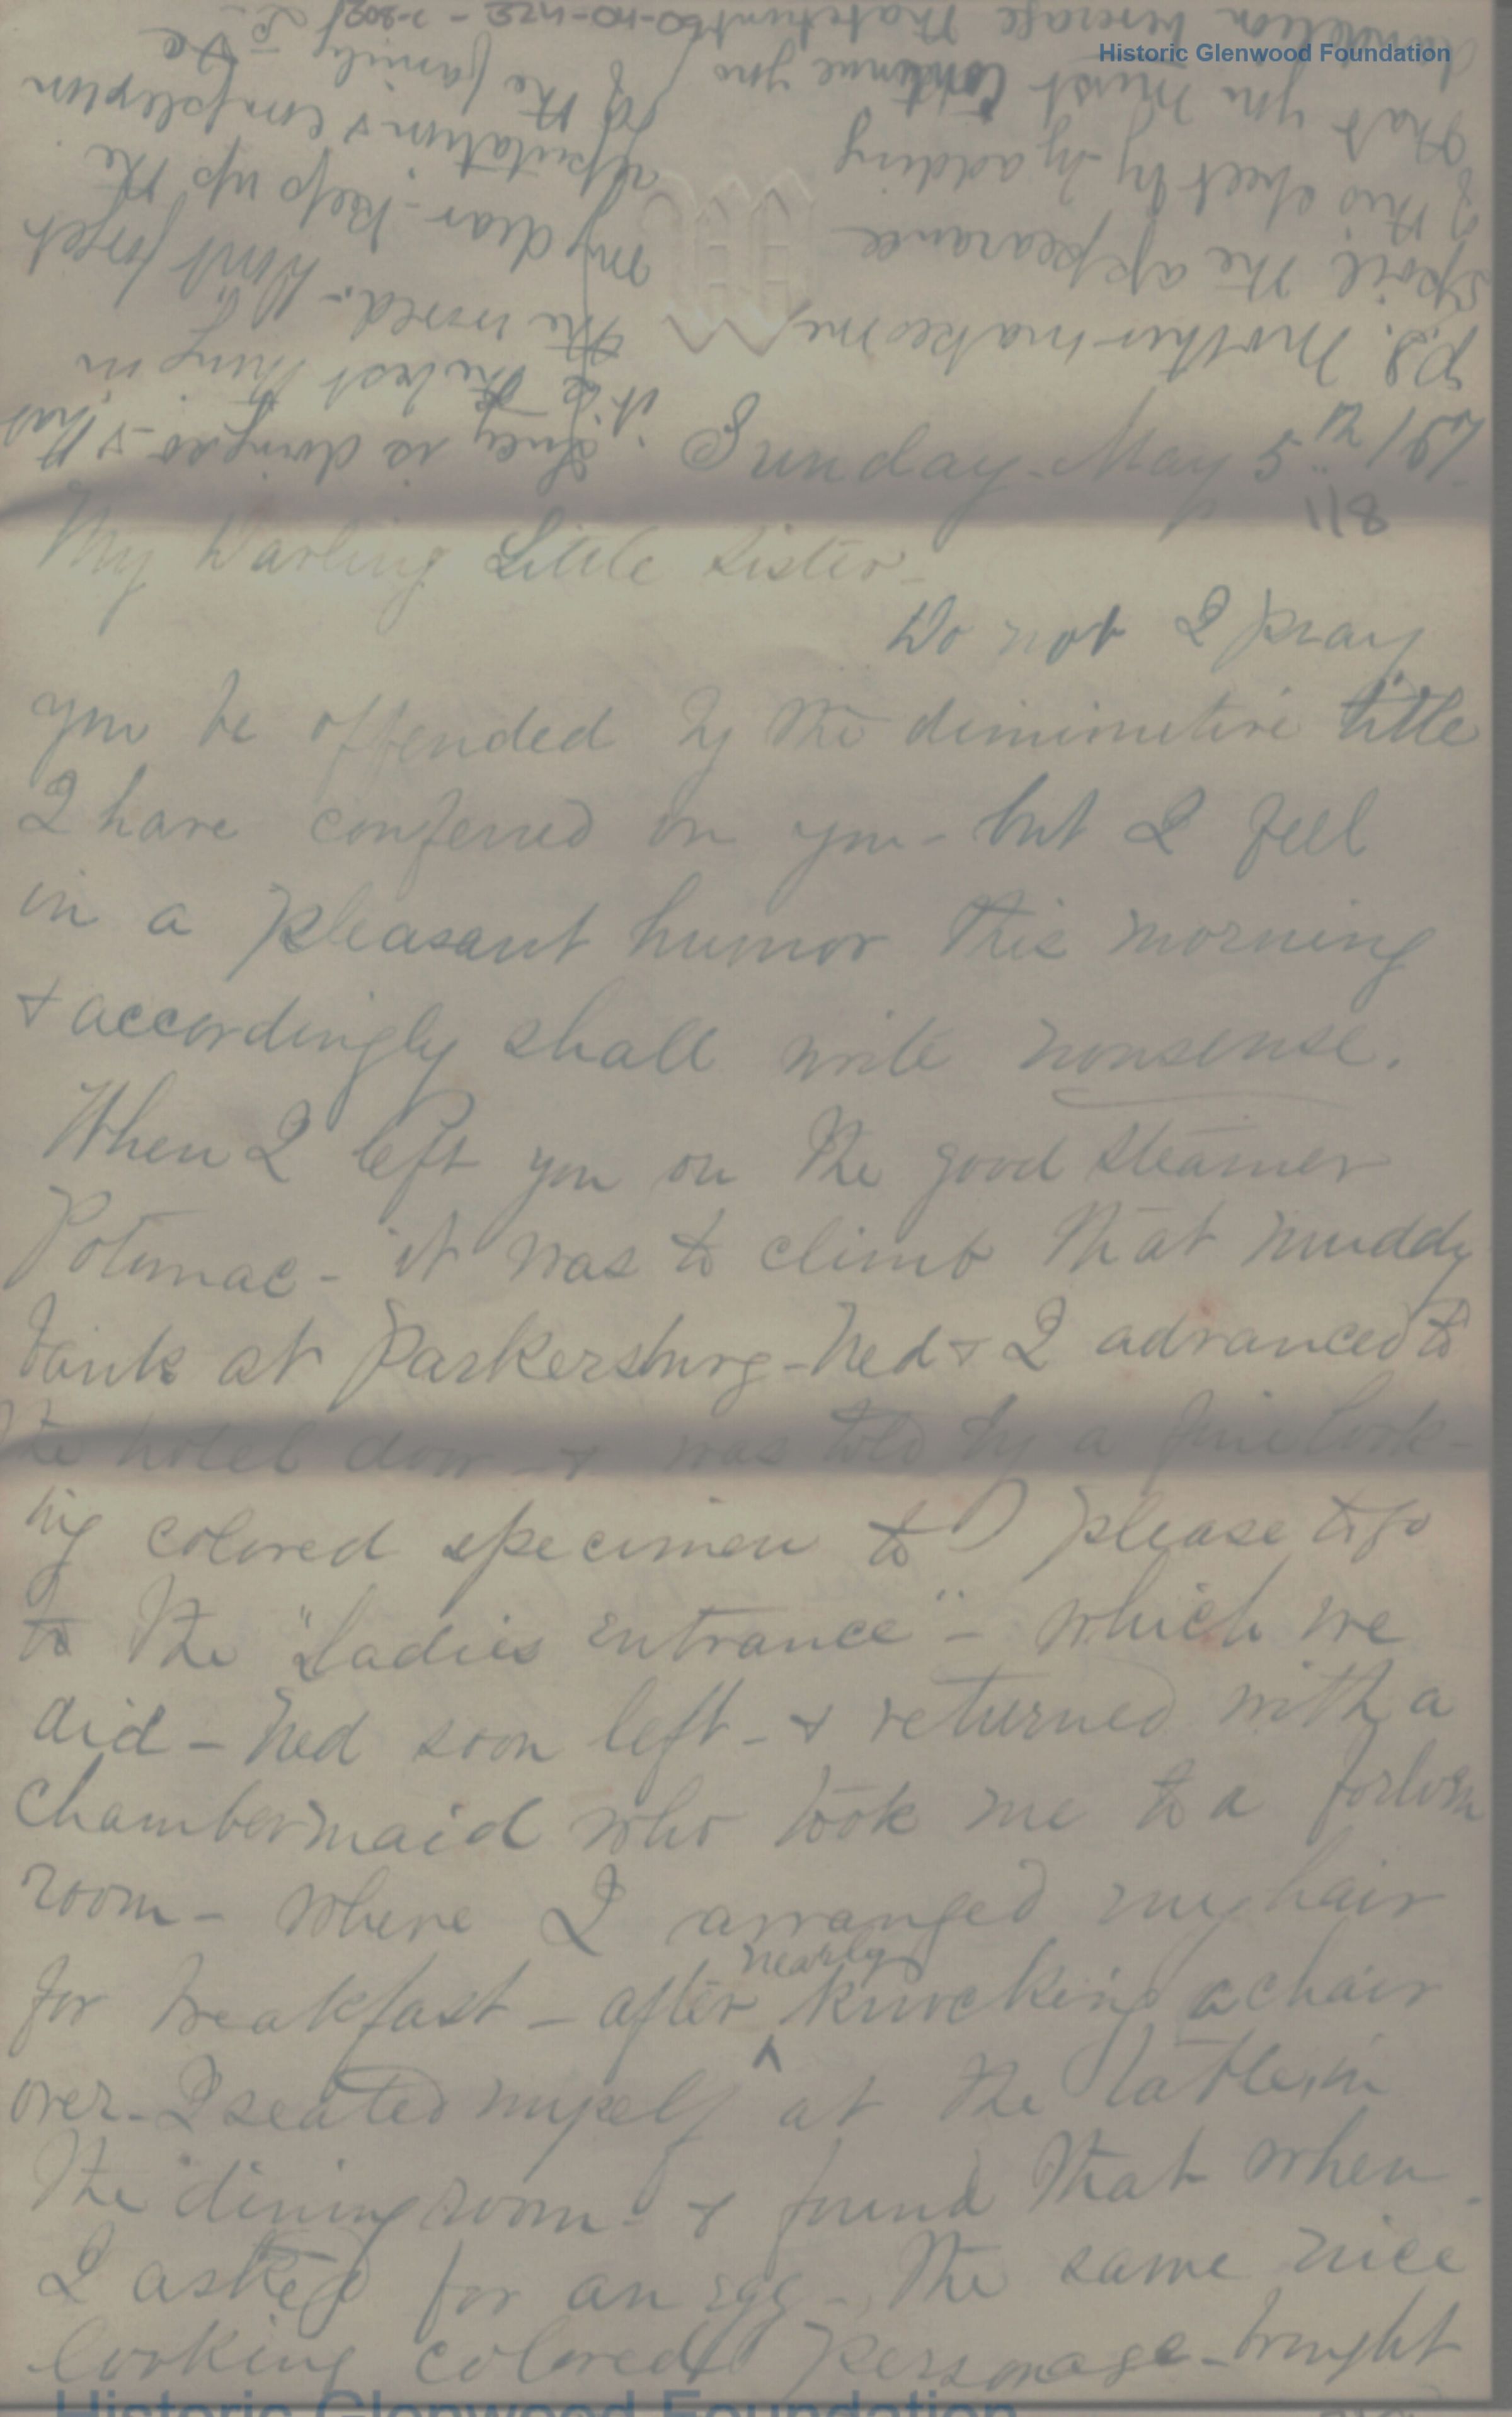 Historic Glenwood Foundation
Sunday - May 5th / 67.
118
My Darling Little Sister -
Do not I pray
you be offended by the diminutive title
I have conferred on you - but I feel
in a pleasant humor this morning
& accordingly shall write nonsense.
When I left you on the good steamer
Potomac - it was to climb that muddy
bank at Parkersburg - Ned & I advanced to
the hotel door - & was told by a fine look-
ing colored specimen to please to go
to the "Ladies entrance" - which we
did - Ned soon left - & returned with a
chambermaid who took me to a forlorn
room - where I arranged my hair
for breakfast - after nearly knocking a chair
over - I seated myself at the table in
the dining room - & found that when
I asked for an egg - the same nice
looking colored personage - brought
P.S. Mother makes me
spoil the appearance
of this sheet by - by adding
that you must continue you
dandelion beverage that
Lucy is doing so - & that
it is the best thing in
the world. - Don't forget
my dear - keep up the
reputation & complexion
of the family
Historic Glenwood Foundation